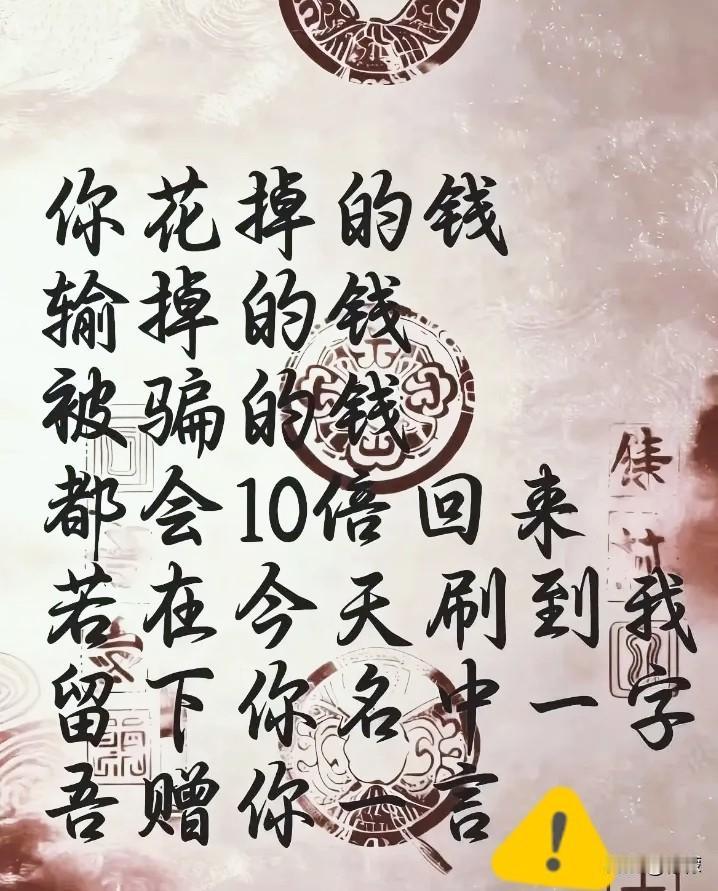 你花掉的钱
输掉的钱
被骗的钱
都会10倍回来
若在今天刷到我
留下你名中一字
吾赠你一言